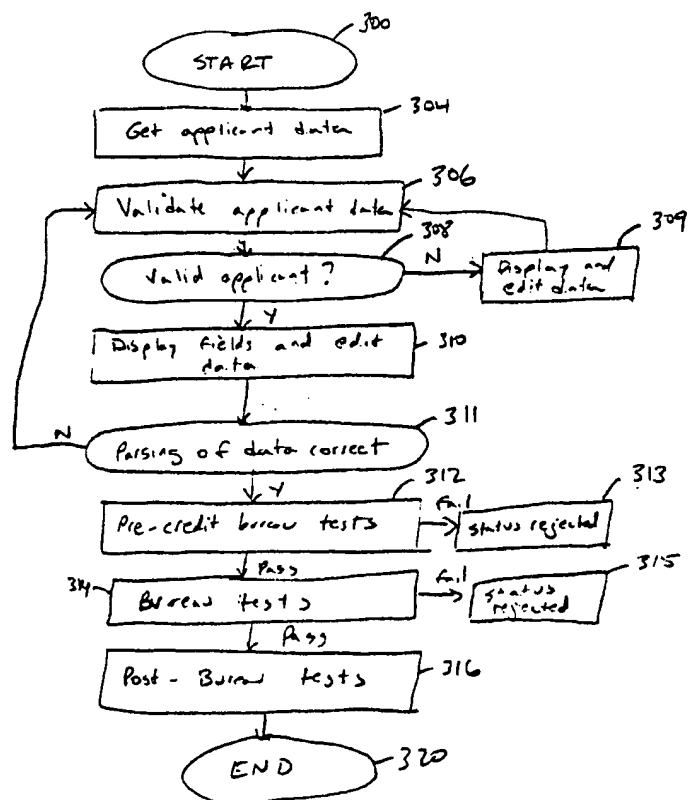 300
START
304
Get applicant data
306
Validate applicant data
308
309
Valid applicant?
N
Display and
edit data
Y
Display fields and edit
data
310
311
N
Parsing of data correct
Y
312
313
Pre-credit bureau tests
Fail
status rejected
Pass
315
314
Bureau tests
Fail
status
rejected
Pass
Post-Bureau tests
316
END
320